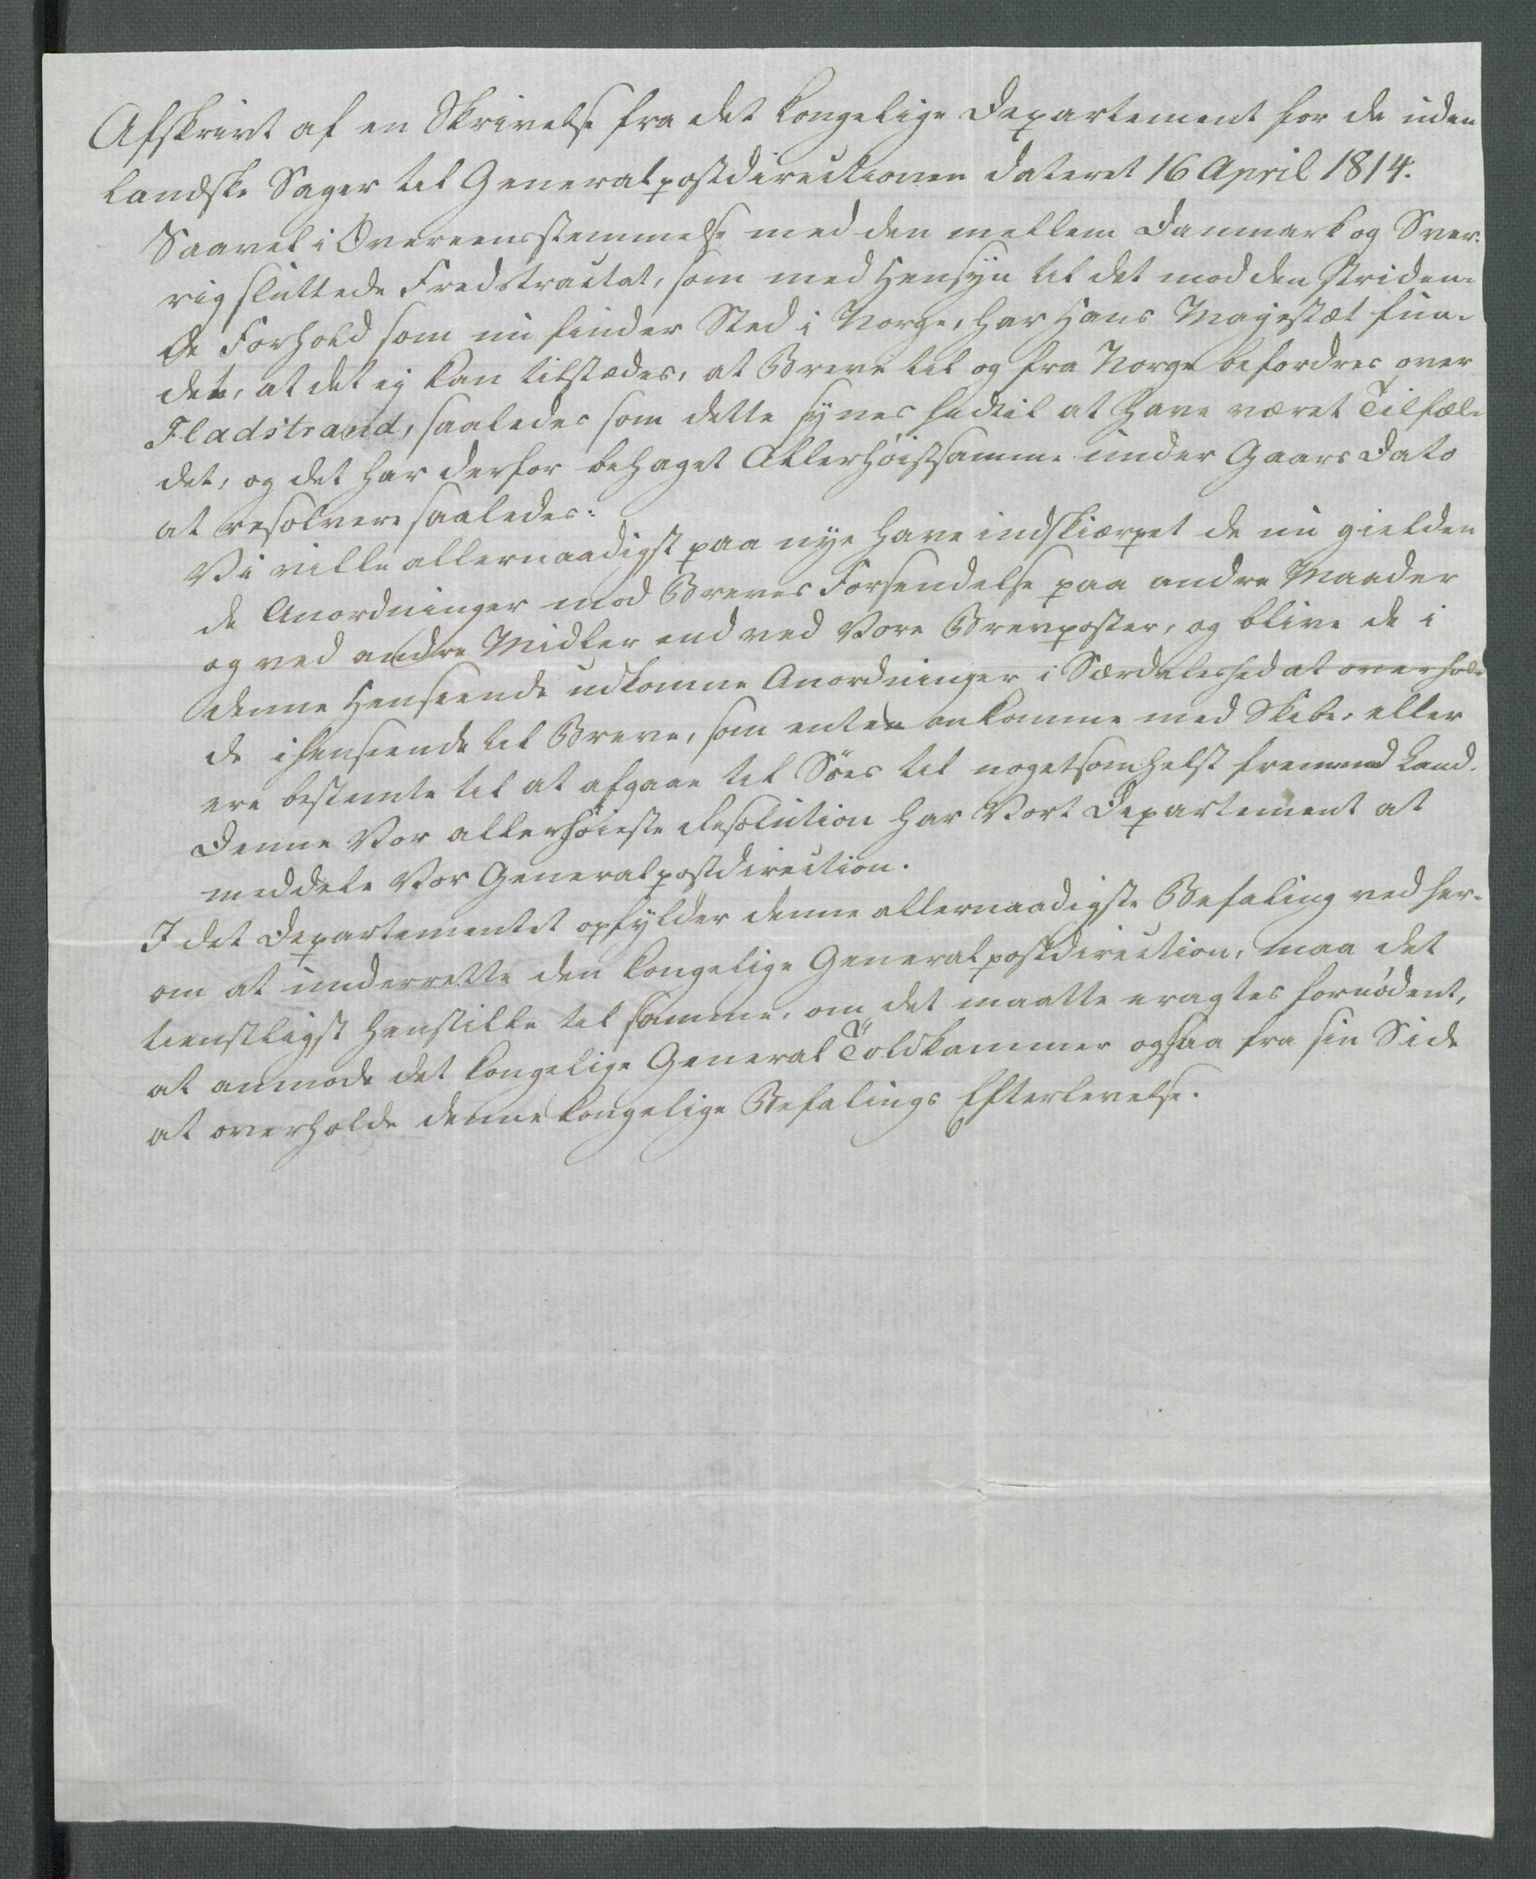 Afskrivt af en Skrivelse fra det kongelige Departement for de uden
landske Sager til Generalpostdirectionen dateret 16 April 1814.
Saavel i Overeensstemmelse med den mellem Danmark og Sver-
rig sluttede Fredstractat, som med Hensyn til det mod den striden-
de Forhold som nu finder Sted i Norge, har Hans Majestæt fun-
det, at det ej kan tilstædes, at Breve til og fra Norge befordres over
Fladstrand, saaledes som dette synes hidtil at have været Tilfæl-
det, og det har derfor behaget Allerhøistsamme under Gaars Dato
at resolvere saaledes:
Vi ville allernaadigst paa nye have indskiærpet de nu gielden
de Anordninger mod Breves Forsendelse paa andre Maader
og ved andre Midler end ved Vore Brevposter, og blive de i
denne Henseende udkomne Anordninger i Særdeleshed at overhol-
de i Henseende til Breve, som enten ankomme med Skibe, eller
ere bestemte til at afgaae til Søes til nogetsomhelst fremmed Land.
Denne Vor allerhøieste Resolution har Vort Departement at
meddele Vor Generalpostdirection.
I det Departementet opfylder denne allernaadigste Befaling ved her-
om at underrette den kongelige Generalpostdirection, maa det
tienstligst henstille til samme, om det maatte eragtes fornødent,
at anmode det kongelige General Toldkammer ogsaa fra sin Side
at overholde denne kongelige Befalings Efterlevelse.